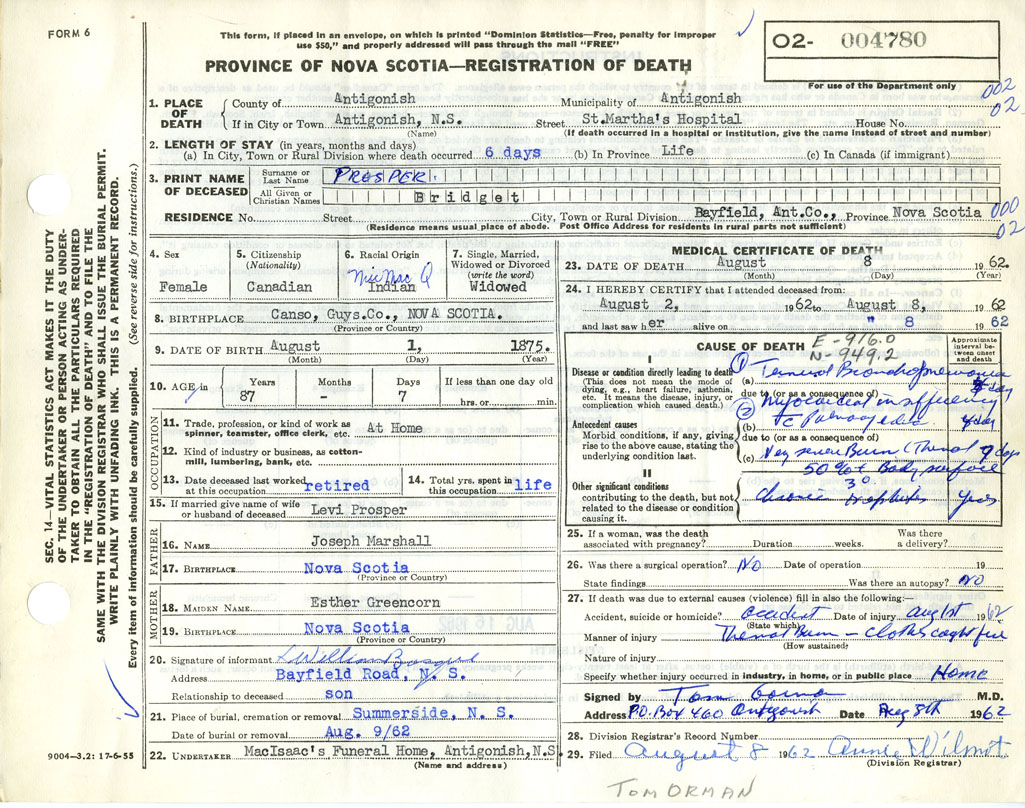 FORM 6
This form, if placed in an envelope, on which is printed "Dominion Statistics—Free, penalty for improper
use $50," and properly addressed will pass through the mail "FREE"
PROVINCE OF NOVA SCOTIA—REGISTRATION OF DEATH
02- 004780
For use of the Department only
002
02
1. PLACE OF DEATH
County of Antigonish Municipality of Antigonish
If in City or Town Antigonish, N.S. Street St.Martha's Hospital House No.
(Name) (If death occurred in a hospital or institution, give the name instead of street and number)
2. LENGTH OF STAY (in years, months and days)
(a) In City, Town or Rural Division where death occurred 6 days (b) In Province Life (c) In Canada (if immigrant)
3. PRINT NAME OF DECEASED
Surname or Last Name PROSPER
All Given or Christian Names Bridget
RESIDENCE No. Street City, Town or Rural Division Bayfield, Ant.Co., Province Nova Scotia
000
02
(Residence means usual place of abode. Post Office Address for residents in rural parts not sufficient)
4. Sex
Female
5. Citizenship
(Nationality)
Canadian
6. Racial Origin
Mic Mac
Indian
7. Single, Married, Widowed or Divorced
(write the word)
Widowed
8. BIRTHPLACE Canso, Guys.Co., NOVA SCOTIA.
(Province or Country)
9. DATE OF BIRTH August 1, 1875.
(Month) (Day) (Year)
10. AGE in
Years Months Days If less than one day old
87 - 7 hrs. or min.
OCCUPATION
11. Trade, profession, or kind of work as
spinner, teamster, office clerk, etc. At Home
12. Kind of industry or business, as cotton-
mill, lumbering, bank, etc.
13. Date deceased last worked at this occupation retired
14. Total yrs. spent in this occupation life
15. If married give name of wife
or husband of deceased Levi Prosper
FATHER
16. NAME Joseph Marshall
17. BIRTHPLACE Nova Scotia
(Province or Country)
MOTHER
18. MAIDEN NAME Esther Greencorn
19. BIRTHPLACE Nova Scotia
(Province or Country)
20. Signature of informant William
Address Bayfield Road, N. S.
Relationship to deceased son
21. Place of burial, cremation or removal Summerside, N. S.
Date of burial or removal Aug. 9/62
22. UNDERTAKER MacIsaac's Funeral Home, Antigonish,N.S
(Name and address)
MEDICAL CERTIFICATE OF DEATH
23. DATE OF DEATH August 8 1962.
(Month) (Day) (Year)
24. I HEREBY CERTIFY that I attended deceased from:
August 2, 1962 to August 8, 1962
and last saw her alive on " 8 1962
CAUSE OF DEATH
E-916.0
N-949.2
Approximate interval between onset and death
I
Disease or condition directly leading to death
(This does not mean the mode of
dying, e.g., heart failure, asthenia,
etc. It means the disease, injury, or
complication which caused death.)
(a) Terminal Bronchopneumonia day
due to (or as a consequence of)
Antecedent causes
Morbid conditions, if any, giving
rise to the above cause, stating the
underlying condition last.
(b) Myocardial insufficiency
due to (or as a consequence of)
(c) Very severe Burn (Thermal
50% Body surface
II
30
Other significant conditions
contributing to the death, but not
related to the disease or condition
causing it.
Chronic Nephritis years
25. If a woman, was the death
associated with pregnancy? Duration weeks. Was there a delivery?
26. Was there a surgical operation? NO Date of operation 19
State findings Was there an autopsy? NO
27. If death was due to external causes (violence) fill in also the following:—
Accident, suicide or homicide? accident Date of injury aug 1st 1962
(State which)
Manner of injury Thermal Burn – clothes caught fire
(How sustained)
Nature of injury
Specify whether injury occurred in industry, in home, or in public place Home
Signed by Tom M.D.
Address P.O. Box 460 Antigonish Date Aug 8th 1962
28. Division Registrar's Record Number
29. Filed August 8 1962 Annie Wilmot
(Division Registrar)
TOM ORMAN
SEC. 14—VITAL STATISTICS ACT MAKES IT THE DUTY
OF THE UNDERTAKER OR PERSON ACTING AS UNDER-
TAKER TO OBTAIN ALL THE PARTICULARS REQUIRED
IN THE "REGISTRATION OF DEATH" AND TO FILE THE
SAME WITH THE DIVISION REGISTRAR WHO SHALL ISSUE THE BURIAL PERMIT.
WRITE PLAINLY WITH UNFADING INK. THIS IS A PERMANENT RECORD.
Every item of information should be carefully supplied. (See reverse side for instructions.)
9004-3.2: 17-6-55